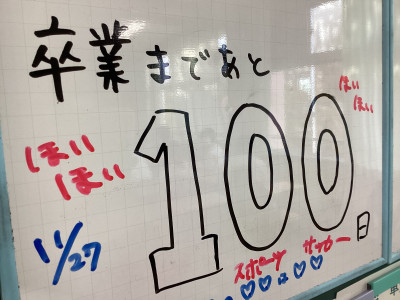 卒業まであと
ほい
ほい
ほい
ほい
100日
11/27
スポーツ サッカー